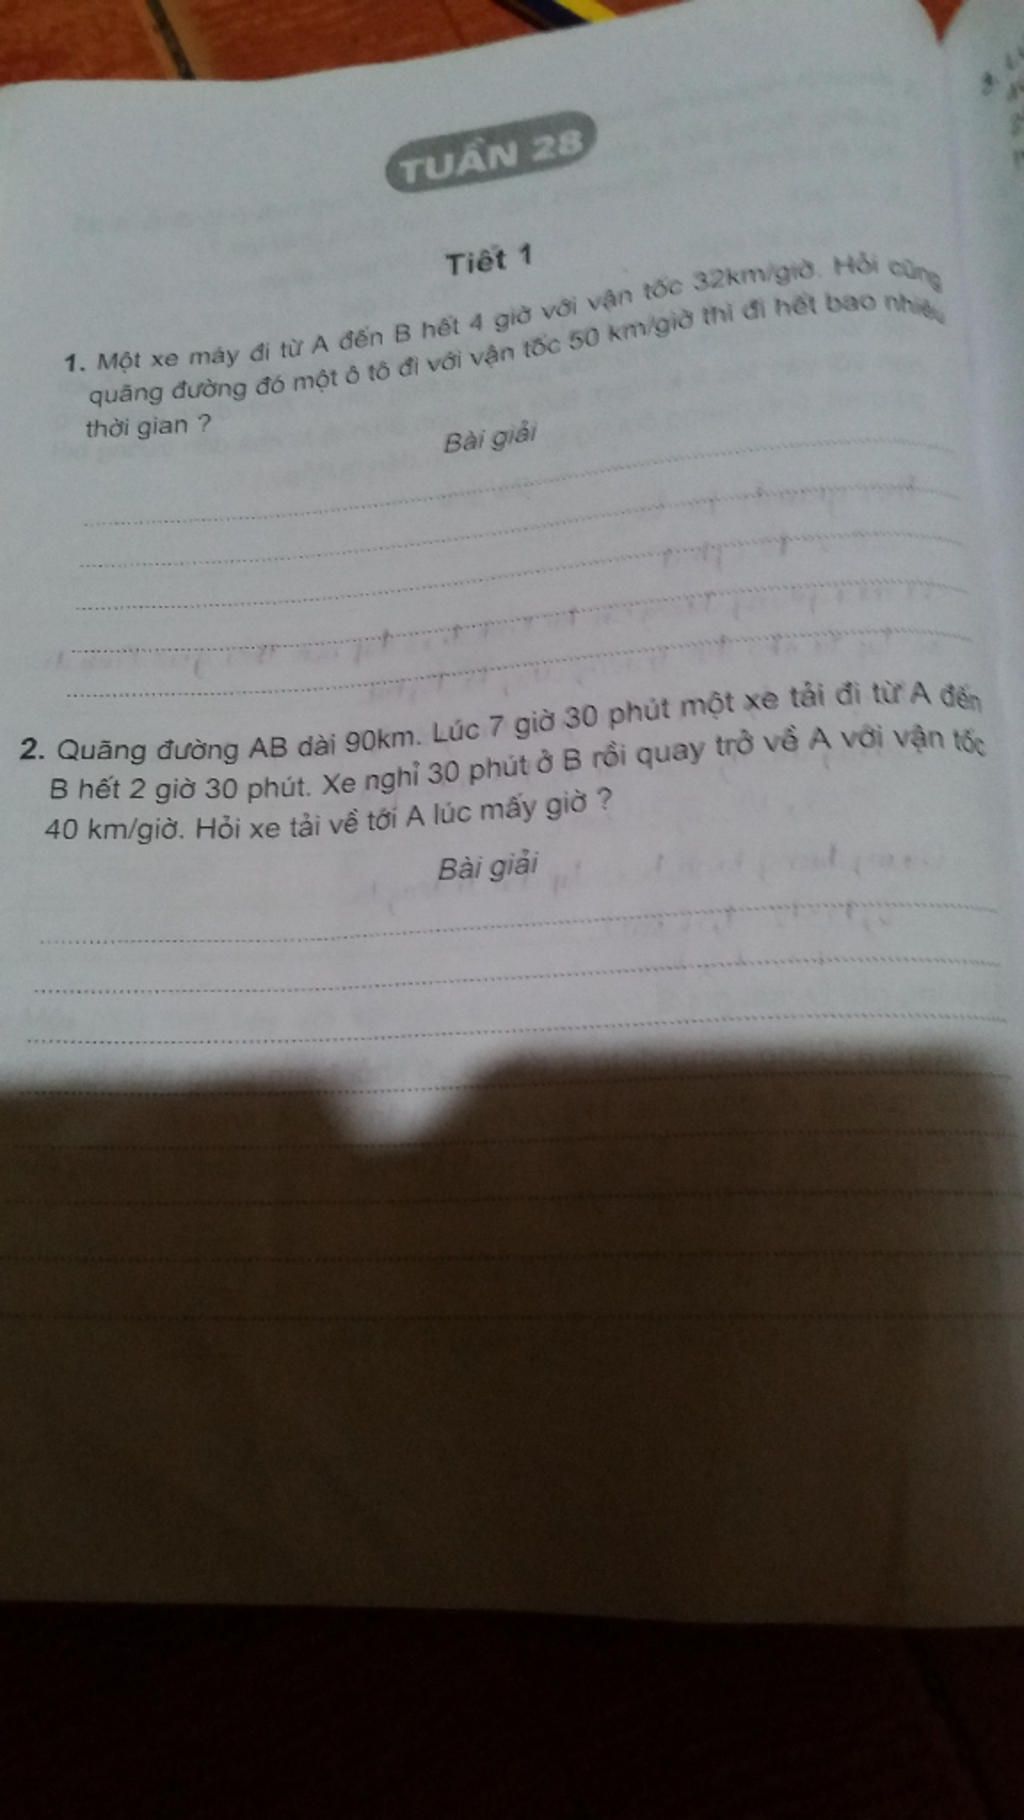 TUẦN 28
Tiết 1
1. Một xe máy đi từ A đến B hết 4 giờ với vận tốc 32km/giờ. Hỏi cũng
quãng đường đó một ô tô đi với vận tốc 50 km/giờ thì đi hết bao nhiêu
thời gian ?
Bài giải
2. Quãng đường AB dài 90km. Lúc 7 giờ 30 phút một xe tải đi từ A đến
B hết 2 giờ 30 phút. Xe nghỉ 30 phút ở B rồi quay trở về A với vận tốc
40 km/giờ. Hỏi xe tải về tới A lúc mấy giờ ?
Bài giải